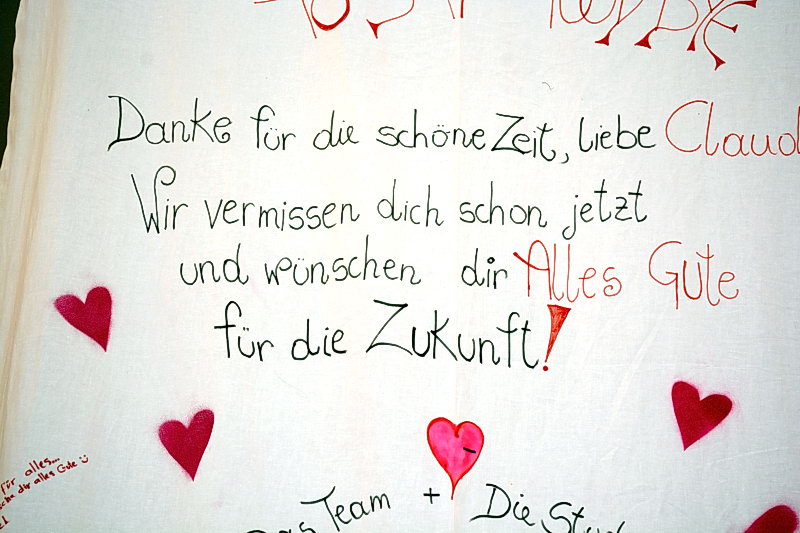 Danke für die schöne Zeit, liebe Claud
Wir vermissen dich schon jetzt
und wünschen dir Alles Gute
für die Zukunft!
für alles...
dir alles Gute :)
Das Team + Die Stud